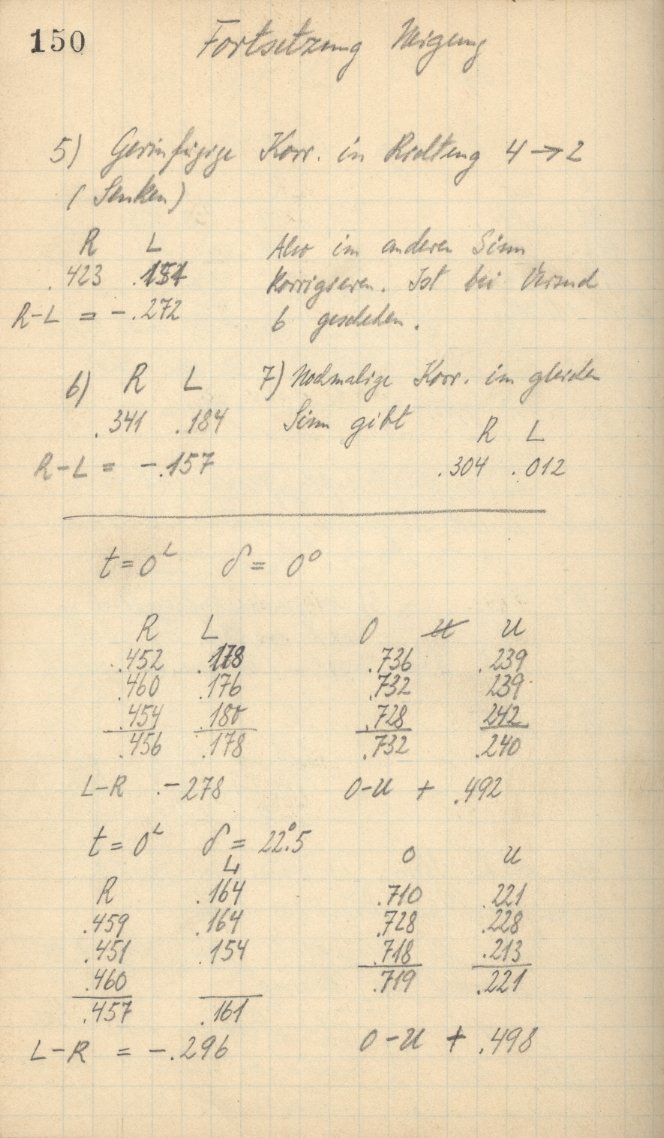 150 Fortsetzung Neigung
5) Geringfügige Korr. in Richtung 4 → 2
(Senken)
R L
.423 .151
R-L = -.272
Also im anderen Sinn
korrigieren. Ist bei Versuch
6 geschehen.
6) R L
.341 .184
R-L = -.157
7) Nochmalige Korr. im gleichen
Sinn gibt
R L
.304 .012
t = 0ʰ δ = 0°
R L
.452 .178
.460 .176
.454 .180
.456 .178
L-R .-278
O U U
.736 .239
.732 239
.728 242
.732 .240
O-U + .492
t = 0ʰ δ = 22°.5
R L
.459 .164
.451 .164
.460 .154
.457 .161
L-R = -.296
O U
.710 .221
.728 .228
.718 .213
.719 .221
O-U + .498